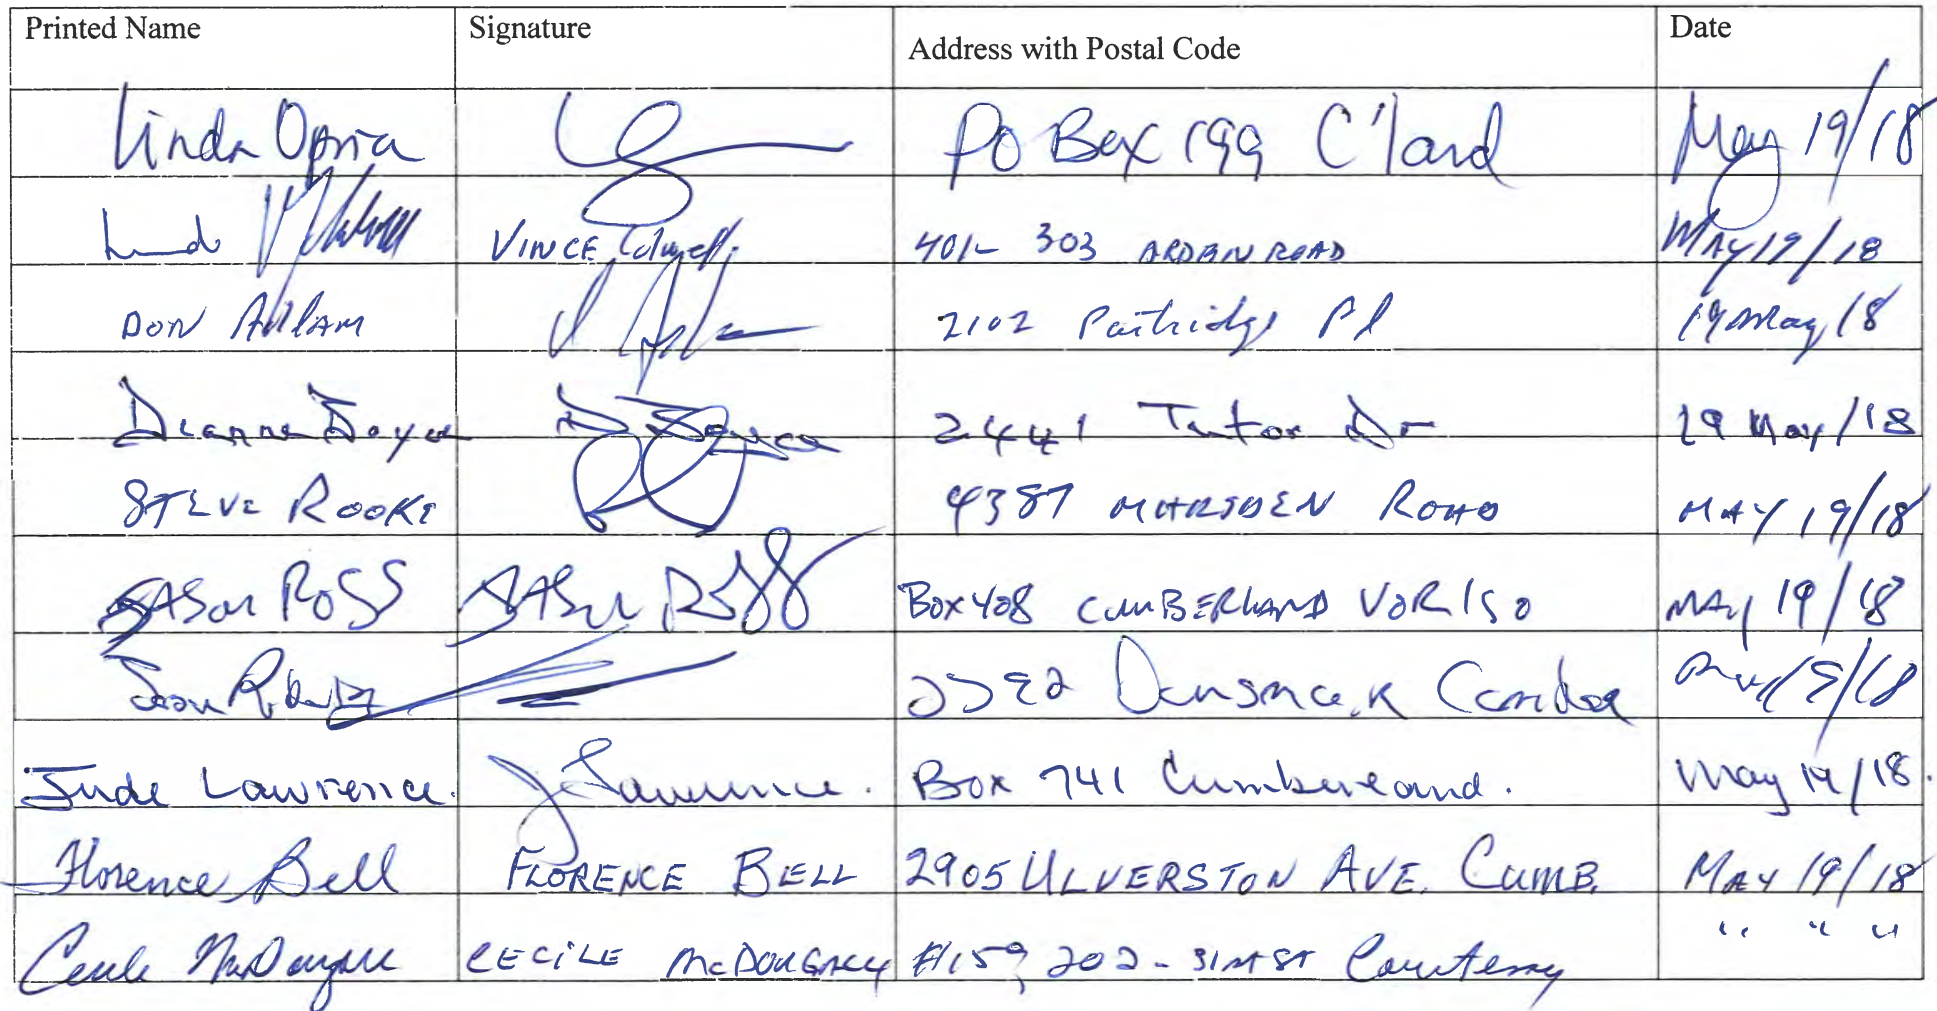 Printed Name Signature Address with Postal Code Date
Linda PO Box 199 C'land May 19/18
VINCE 401- 303 ARDEN ROAD MAY 19/18
DON 2102 Partridge Pl 19 May/18
Dianne Joyce D Joyce 2441 Tutor Dr 19 May/18
STEVE ROOKE 4387 MARSDEN ROAD MAY 19/18
JASON ROSS JASON ROSS BOX 408 CUMBERLAND V0R 1S0 MAY 19/18
/18
Jude Lawrence. J Lawrence. Box 741 Cumberland. May 19/18.
Florence Bell FLORENCE BELL 2905 ULVERSTON AVE. CUMB. MAY 19/18
CECILE #159, 202 - 31st ST Courtenay " " "